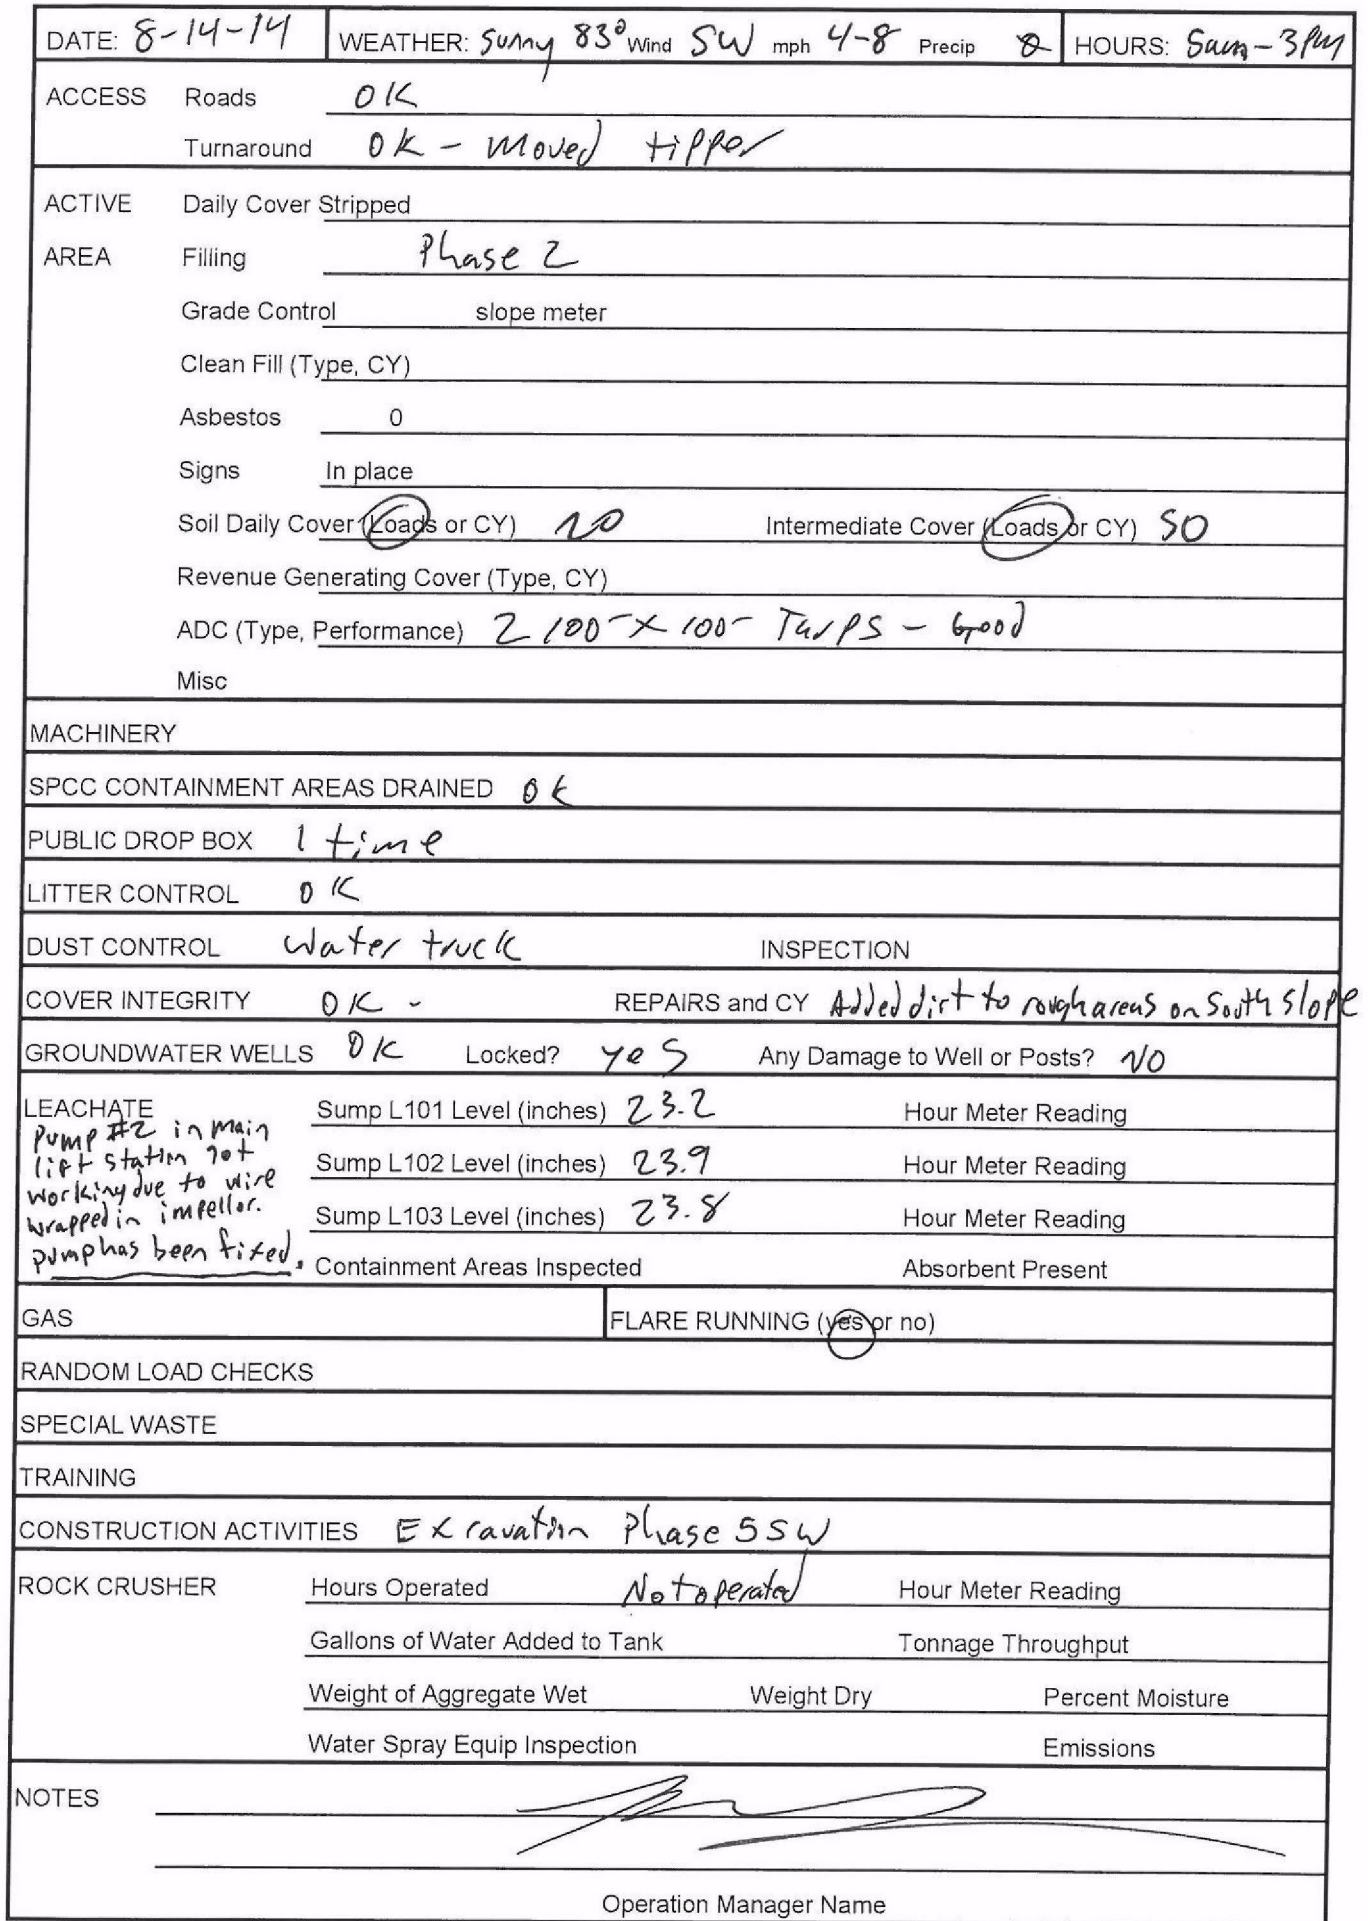 DATE: 8-14-14 WEATHER: Sunny 83° Wind SW mph 4-8 Precip 0 HOURS: 5am-3PM
ACCESS Roads OK
Turnaround OK - moved tipper
ACTIVE Daily Cover Stripped
AREA Filling Phase 2
Grade Control slope meter
Clean Fill (Type, CY)
Asbestos 0
Signs In place
Soil Daily Cover (Loads or CY) 20 Intermediate Cover (Loads or CY) 50
Revenue Generating Cover (Type, CY)
ADC (Type, Performance) 2 100-X100- Tarps - Good
Misc
MACHINERY
SPCC CONTAINMENT AREAS DRAINED OK
PUBLIC DROP BOX 1 time
LITTER CONTROL OK
DUST CONTROL Water truck INSPECTION
COVER INTEGRITY OK - REPAIRS and CY Added dirt to rough areas on South slope
GROUNDWATER WELLS OK Locked? yes Any Damage to Well or Posts? NO
LEACHATE Sump L101 Level (inches) 23.2 Hour Meter Reading
pump #2 in main
lift station not
Sump L102 Level (inches) 23.9 Hour Meter Reading
working due to wire
wrapped in impellor.
Sump L103 Level (inches) 23.8 Hour Meter Reading
pump has been fixed.
Containment Areas Inspected Absorbent Present
GAS FLARE RUNNING (yes or no)
RANDOM LOAD CHECKS
SPECIAL WASTE
TRAINING
CONSTRUCTION ACTIVITIES Excavation Phase 5SW
ROCK CRUSHER Hours Operated Not operated Hour Meter Reading
Gallons of Water Added to Tank Tonnage Throughput
Weight of Aggregate Wet Weight Dry Percent Moisture
Water Spray Equip Inspection Emissions
NOTES
Operation Manager Name